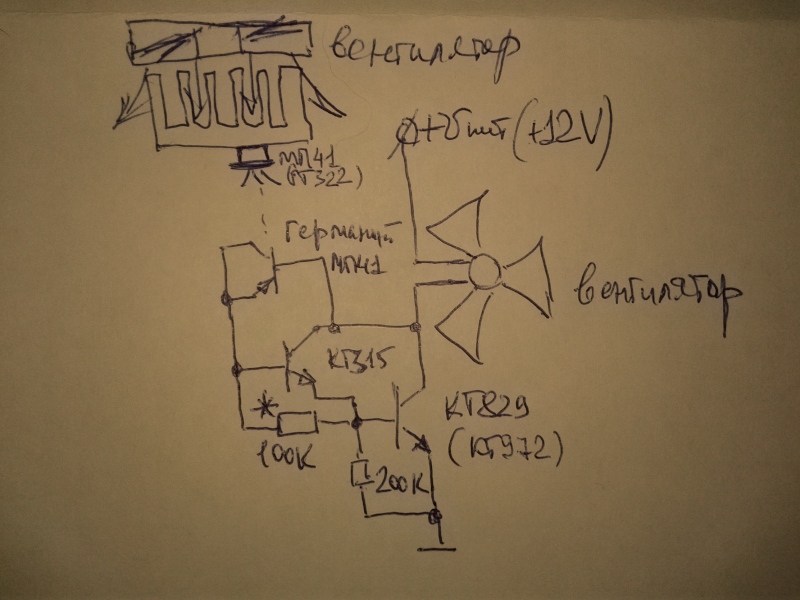 вентилятор
+Uпит (+12V)
МП41
(ГТ322)
Германий
МП41
вентилятор
КТ315
*
100К
КТ829
(КТ972)
200К